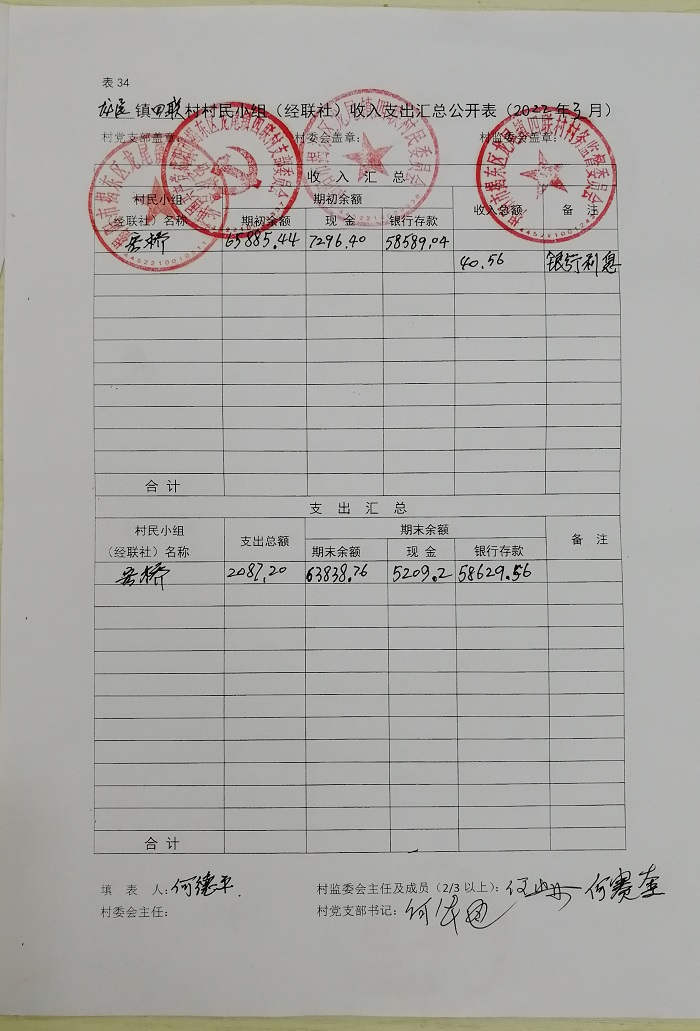 表34
龙尾镇四联村村民小组（经联社）收入支出汇总公开表（2022年3月）
村党支部盖章： 村委会盖章： 村监委会盖章：
收 入 汇 总
村民小组（经联社）名称 期初余额 期初余额 现 金 银行存款 收入总额 备 注
桥 65885.44 7296.40 58589.04
40.56 银行利息
合 计
支 出 汇 总
村民小组（经联社）名称 支出总额 期末余额 期末余额 现 金 银行存款 备 注
桥 2087.20 63838.76 5209.2 58629.56
合 计
填 表 人：何德平 村监委会主任及成员（2/3以上）： 何赛奎
村委会主任： 村党支部书记：何